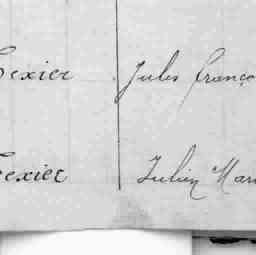 Texier Jules Franço
Texier Julien Mari